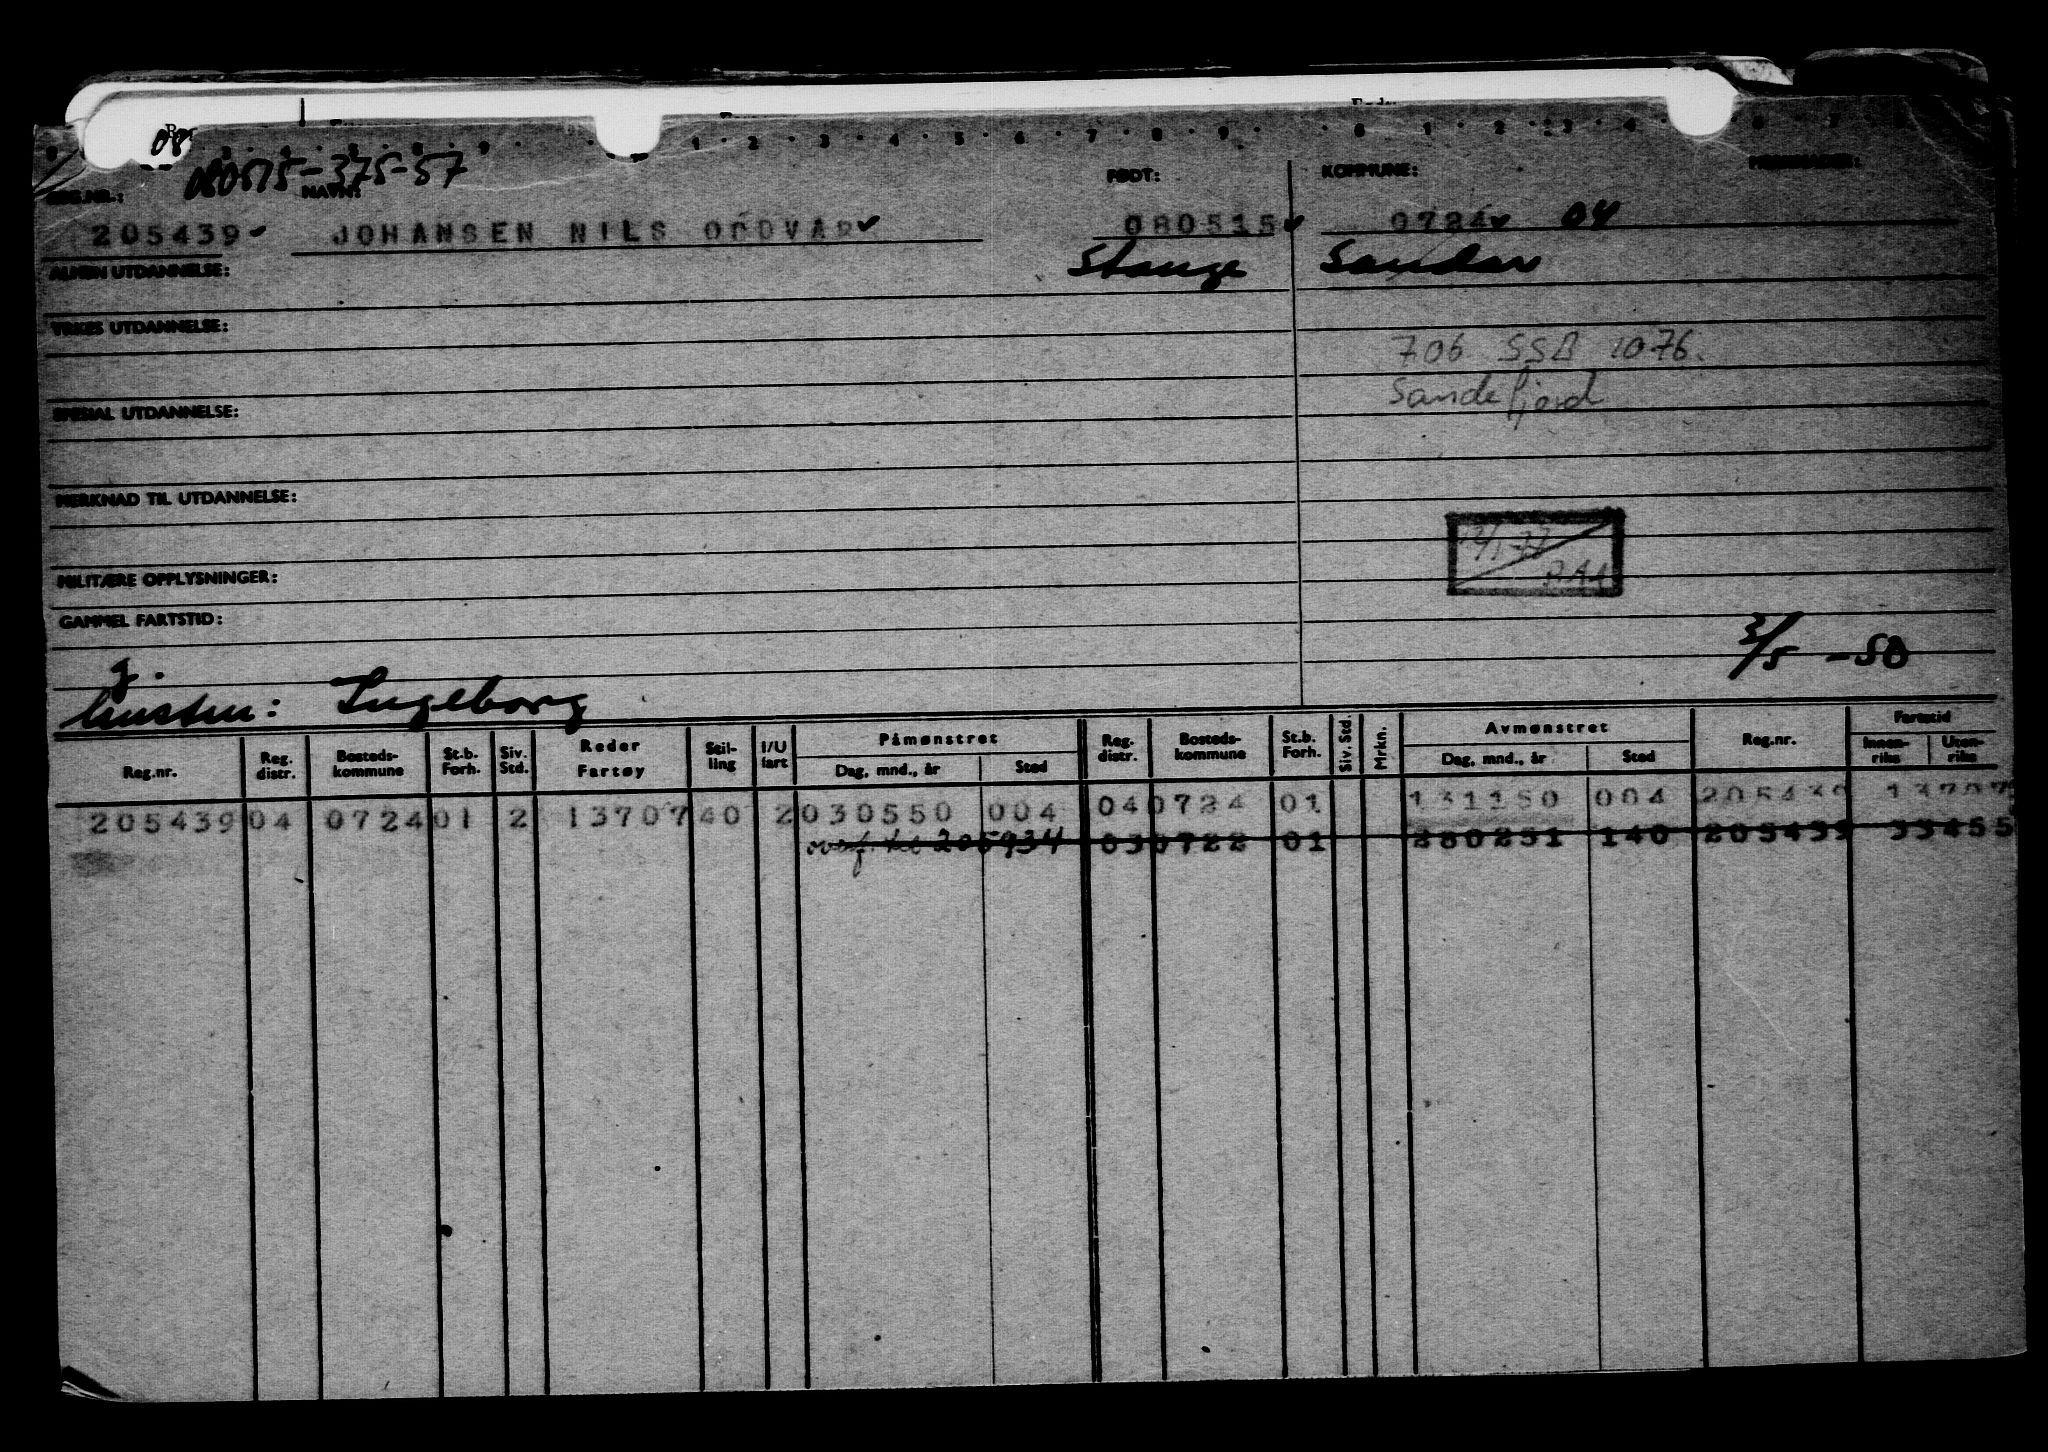 080515-375-57
REG.NR.: NAVN: FØDT: KOMMUNE: MERKNADER:
205439 JOHANSEN NILS ODDVAR 080515 0724 04
ALMEN UTDANNELSE: Stange Sandar
YRKES UTDANNELSE:
706 SSB 10-76.
Sandefjord
SPESIAL UTDANNELSE:
MERKNAD TIL UTDANNELSE:
MILITÆRE OPPLYSNINGER:
GAMMEL FARTSTID:
3/5 -50
g.
hustru: Ingeborg
Reg.nr. Reg. distr. Bosteds-kommune St.b. Forh. Siv. Std. Reder Fartøy Stil-ling I/U fart Påmønstret Dag, mnd., år Sted Reg. distr. Bosteds-kommune St.b. Forh. Siv. Std. Mrkn. Avmønstret Dag, mnd., år Sted Reg.nr. Fartstid Innen-riks Uten-riks
205439 04 0724 01 2 13707 40 2 030550 004 04 0724 01 131150 004 205439 13707
overf. til 205934 03 0722 01 280251 140 205439 33455